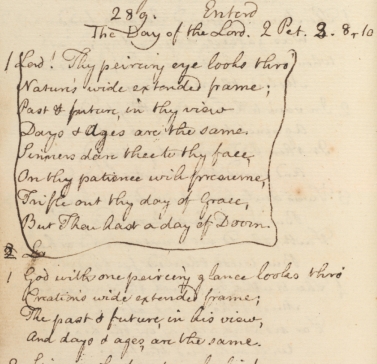 289. Enterd
The Day of the Lord. 2 Pet. 3. 8, 10
1 Lord! Thy peircing eye looks thro'
Nature's wide extended frame;
Past & future, in thy view
Days & Ages are the same.
Sinners dare thee to thy face,
On thy patience will presume,
Trifle out thy day of Grace,
But Thou hast a day of Doom.
2 Lo
1 God with one peircing glance looks thro'
Creation's wide extended frame;
The past & future, in his view,
And days & ages, are the same.